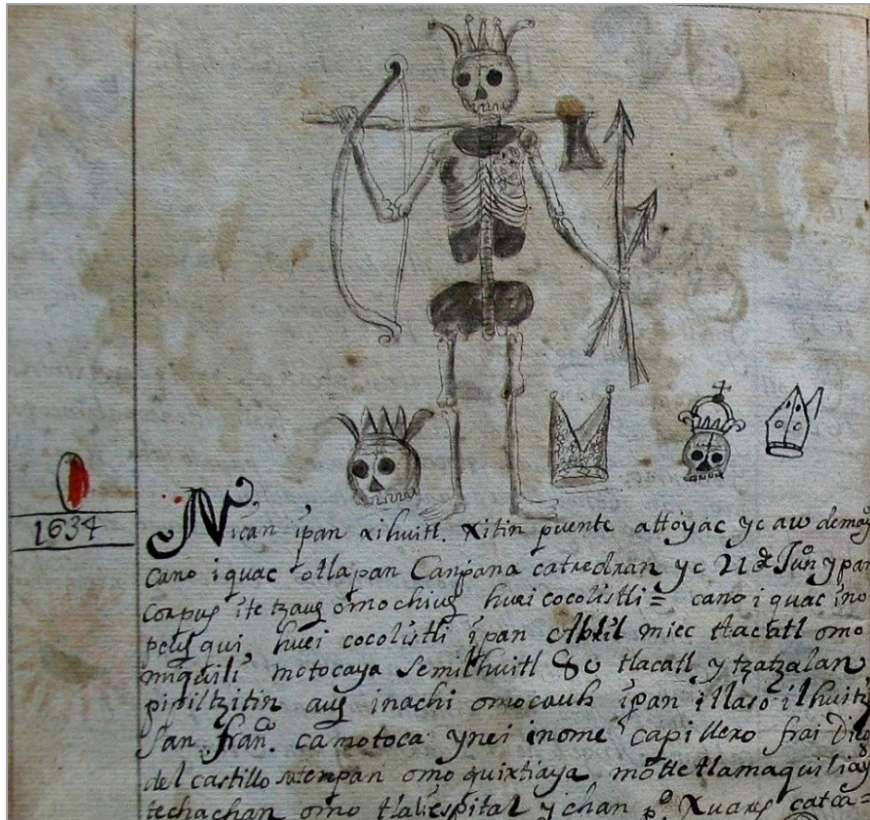 1634
Nican ipan xihuitl. Xitin puente attoyac yc
cano iquac otlapan Canpana catredran yc 21 de Juno ypan
corpus itetzaug omochiug huei cocolistli = cano iquac ino
peug qui huei cocolistli ipan Abril miec tlacatl omo
miquili motocaya semilhuitl 80 tlacatl y tzatzalan
pipiltzitin aug inachi omocauh ipan illaso ilhuitzi
San fran.co camotoca ynei inome capillero frai Diego
del castillo omo quixtiaya motetlamaquiliay
techachan omo y chan p.o Xuares catca =